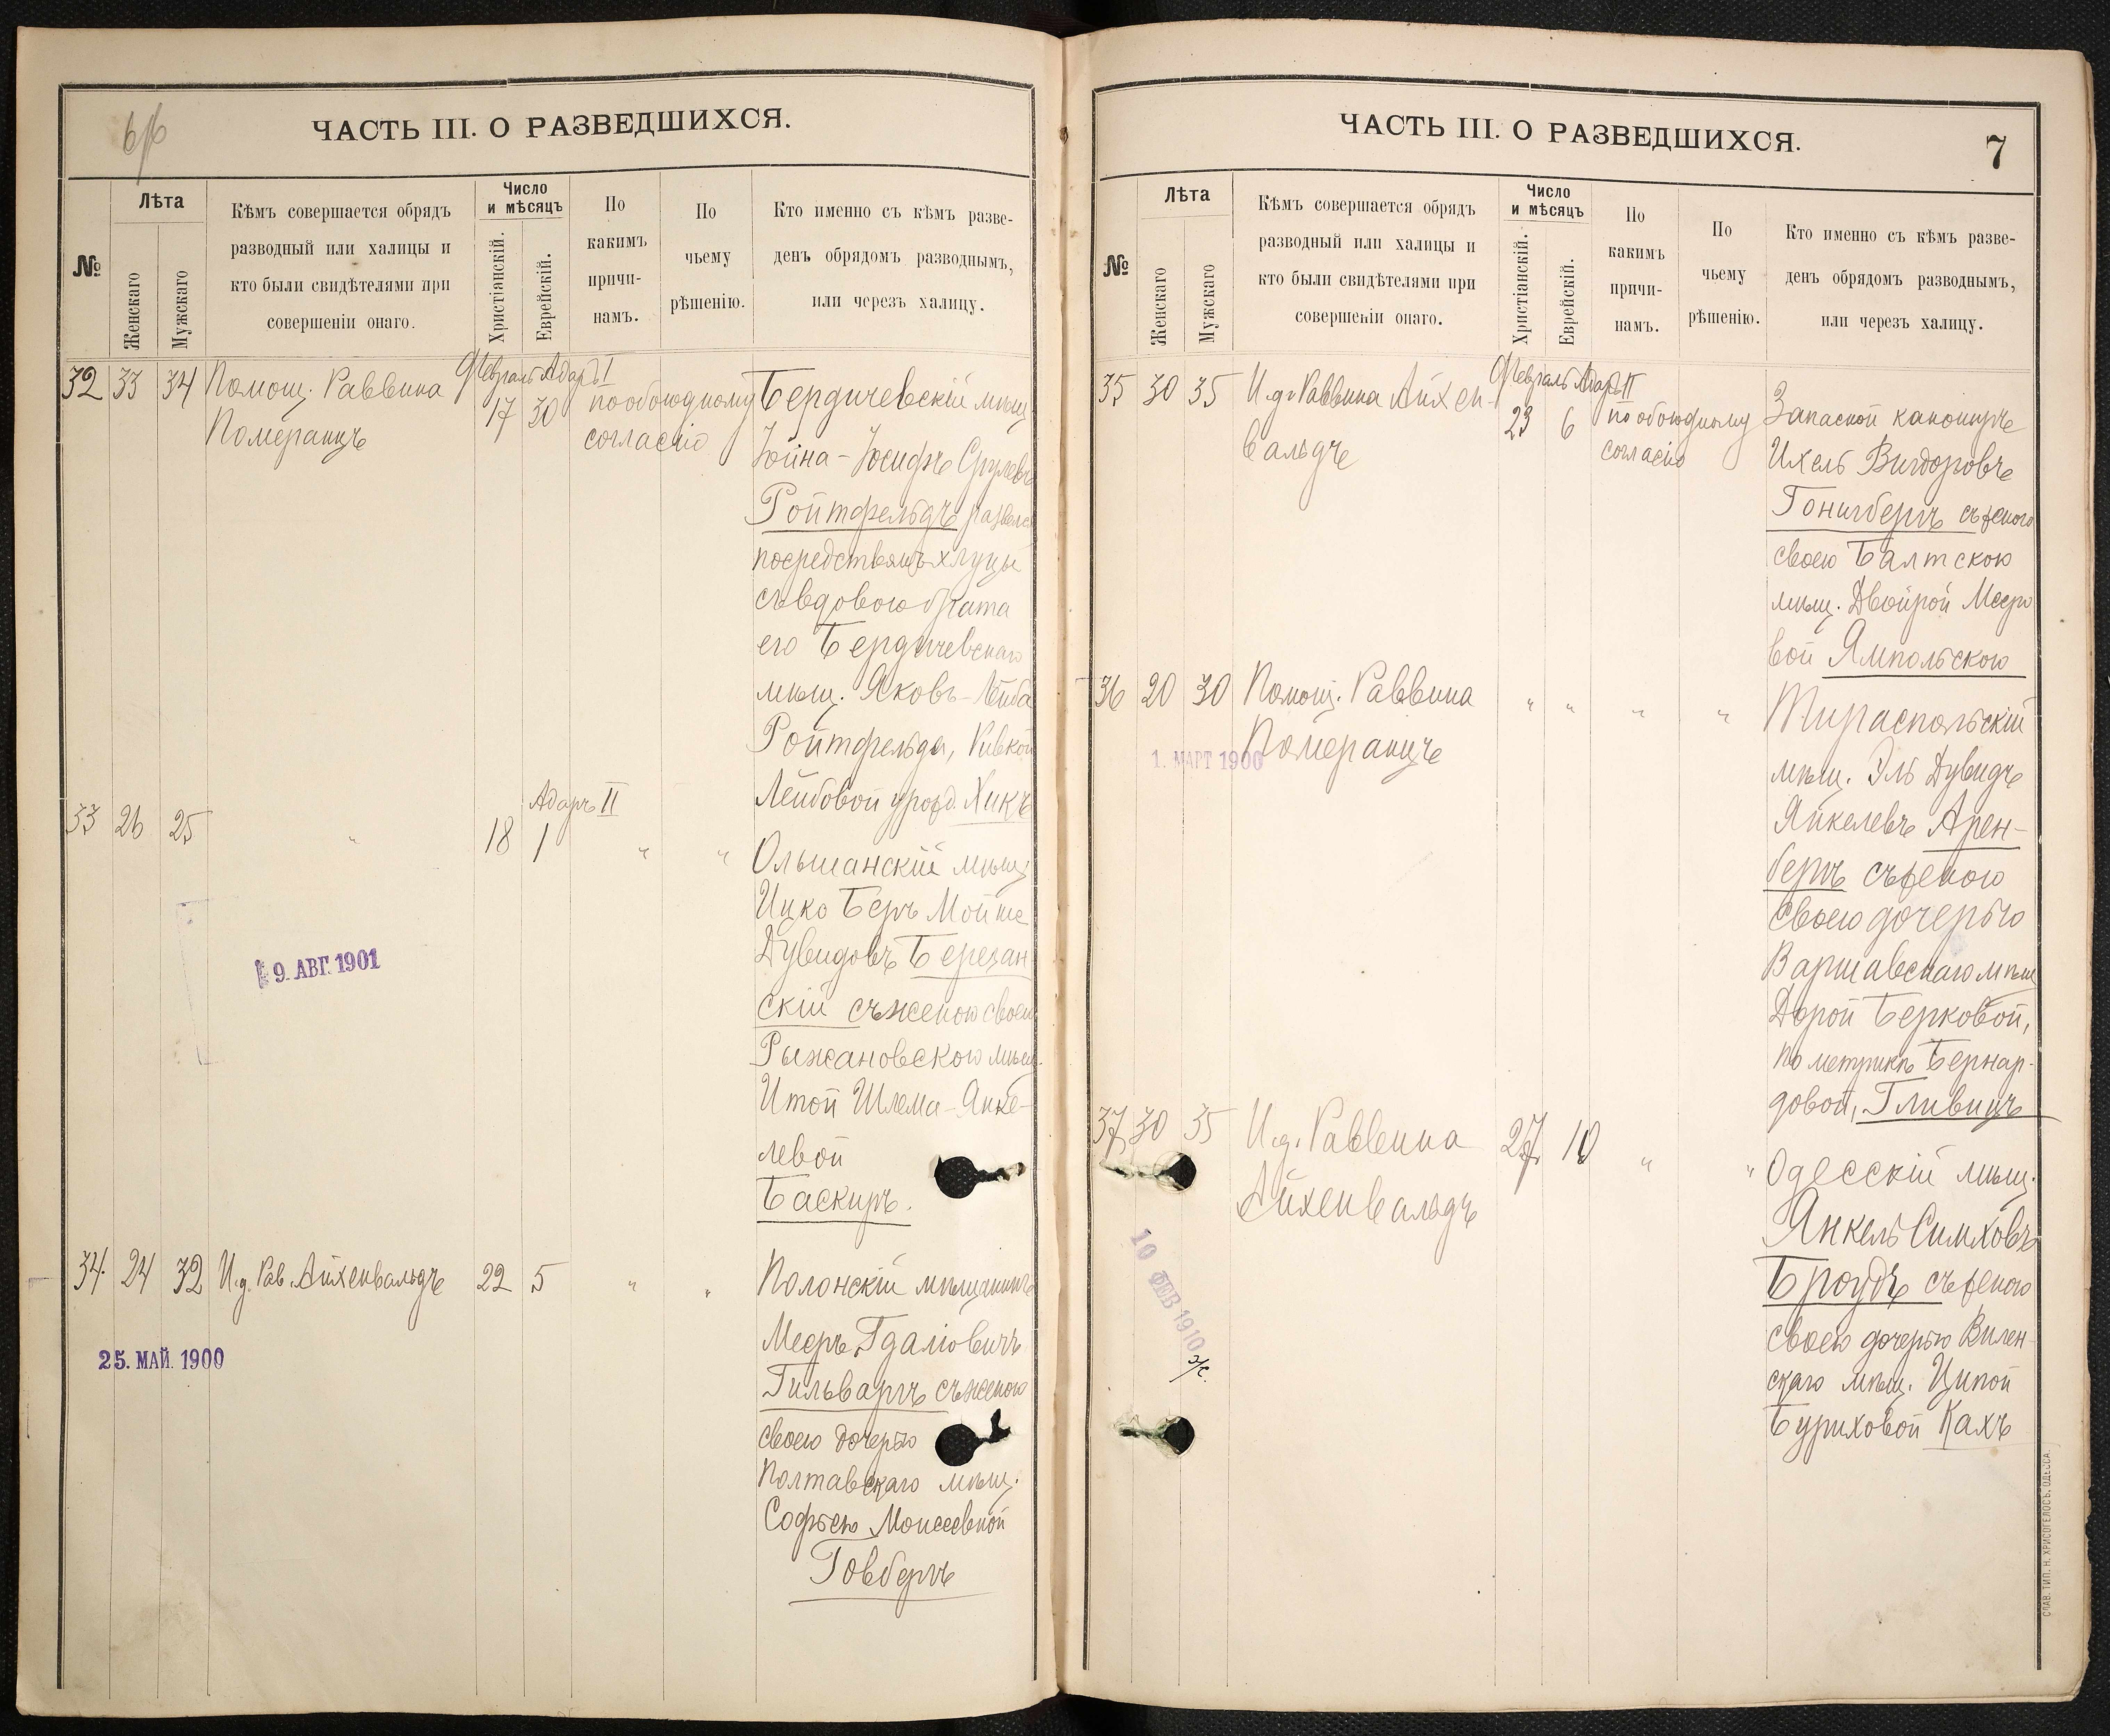 6/6
ЧАСТЬ III. О РАЗВЕДШИХСЯ.
№
Лѣта
Женскаго
Мужскаго
Кѣмъ совершается обрядъ
разводный или халицы и
кто были свидѣтелями при
совершеніи онаго.
Число
и мѣсяцъ
Христіанскій.
Еврейскій.
По
какимъ
причи-
намъ.
По
чьему
рѣшенію.
Кто именно съ кѣмъ разве-
денъ обрядомъ разводнымъ,
или черезъ халицу.
Февраль Адаръ I
32 33 34 Помощ. Раввина 17 30 по обоюдному Бердичевскій мѣщ.
Померанцъ согласію
Іойна-Іосифъ Срулевъ
Ройтфельдъ развелся
посредствамъ хлуцы
съ вдовою брата
его Бердичевскаго
мѣщ. Яковъ-Лейба
Ройтфельда, Ривкой
Лейбовой урожд. Хикъ
Адаръ II
33 26 25 " 18 1 " " Ольшанскій мѣщ.
Ицко Беръ Мойше
Дувидовъ Березан
скій съ женою своею
Рыжановскою мѣщ.
Итой Шлема-Янке-
левой
Баскиръ.
9. АВГ. 1901
34. 24 32 И.д. Рав. Айхенвальдъ 22 5 " " Полонскій мѣщанинъ
Мееръ Гдаліовичъ
Гильваргъ съ женою
своею дочерью
Полтавскаго мѣщ.
Софьею Моисеевной
Говбергъ
25. МАЙ. 1900
ЧАСТЬ III. О РАЗВЕДШИХСЯ.
7
№
Лѣта
Женскаго
Мужскаго
Кѣмъ совершается обрядъ
разводный или халицы и
кто были свидѣтелями при
совершеніи онаго.
Число
и мѣсяцъ
Христіанскій.
Еврейскій.
По
какимъ
причи-
намъ.
По
чьему
рѣшенію.
Кто именно съ кѣмъ разве-
денъ обрядомъ разводнымъ,
или черезъ халицу.
Февраль Адаръ II
35 30 35 И.д. Раввина Айхен- 23 6 по обоюдному Запасной канониръ
вальдъ согласію Ихель Вигдоровъ
Гонигбергъ съ женою
своею Балтскою
мѣщ. Двойрой Мееро
вой Ямпольскою
36 20 30 Помощ. Раввина " " " " Тираспольскій
Померанцъ
1. МАРТ 1900
мѣщ. Эль Дувидъ
Янкелевъ Арен-
бергъ съ женою
своею дочерью
Варшавскаго мѣщ
Дорой Берковой,
по метрикѣ Бернар-
довой, Гливицъ
37 30 35 И.д. Раввина 27 10 " " Одесскій мѣщ.
Айхенвальдъ
Янкель Симховъ
Броудъ съ женою
своею дочерью Вилен-
скаго мѣщ. Ципой
Буриховой Кахъ
10 ФЕВ 1910
СЛАВ. ТИП. Н. ХРИСОГЕЛОСЪ. ОДЕССА.